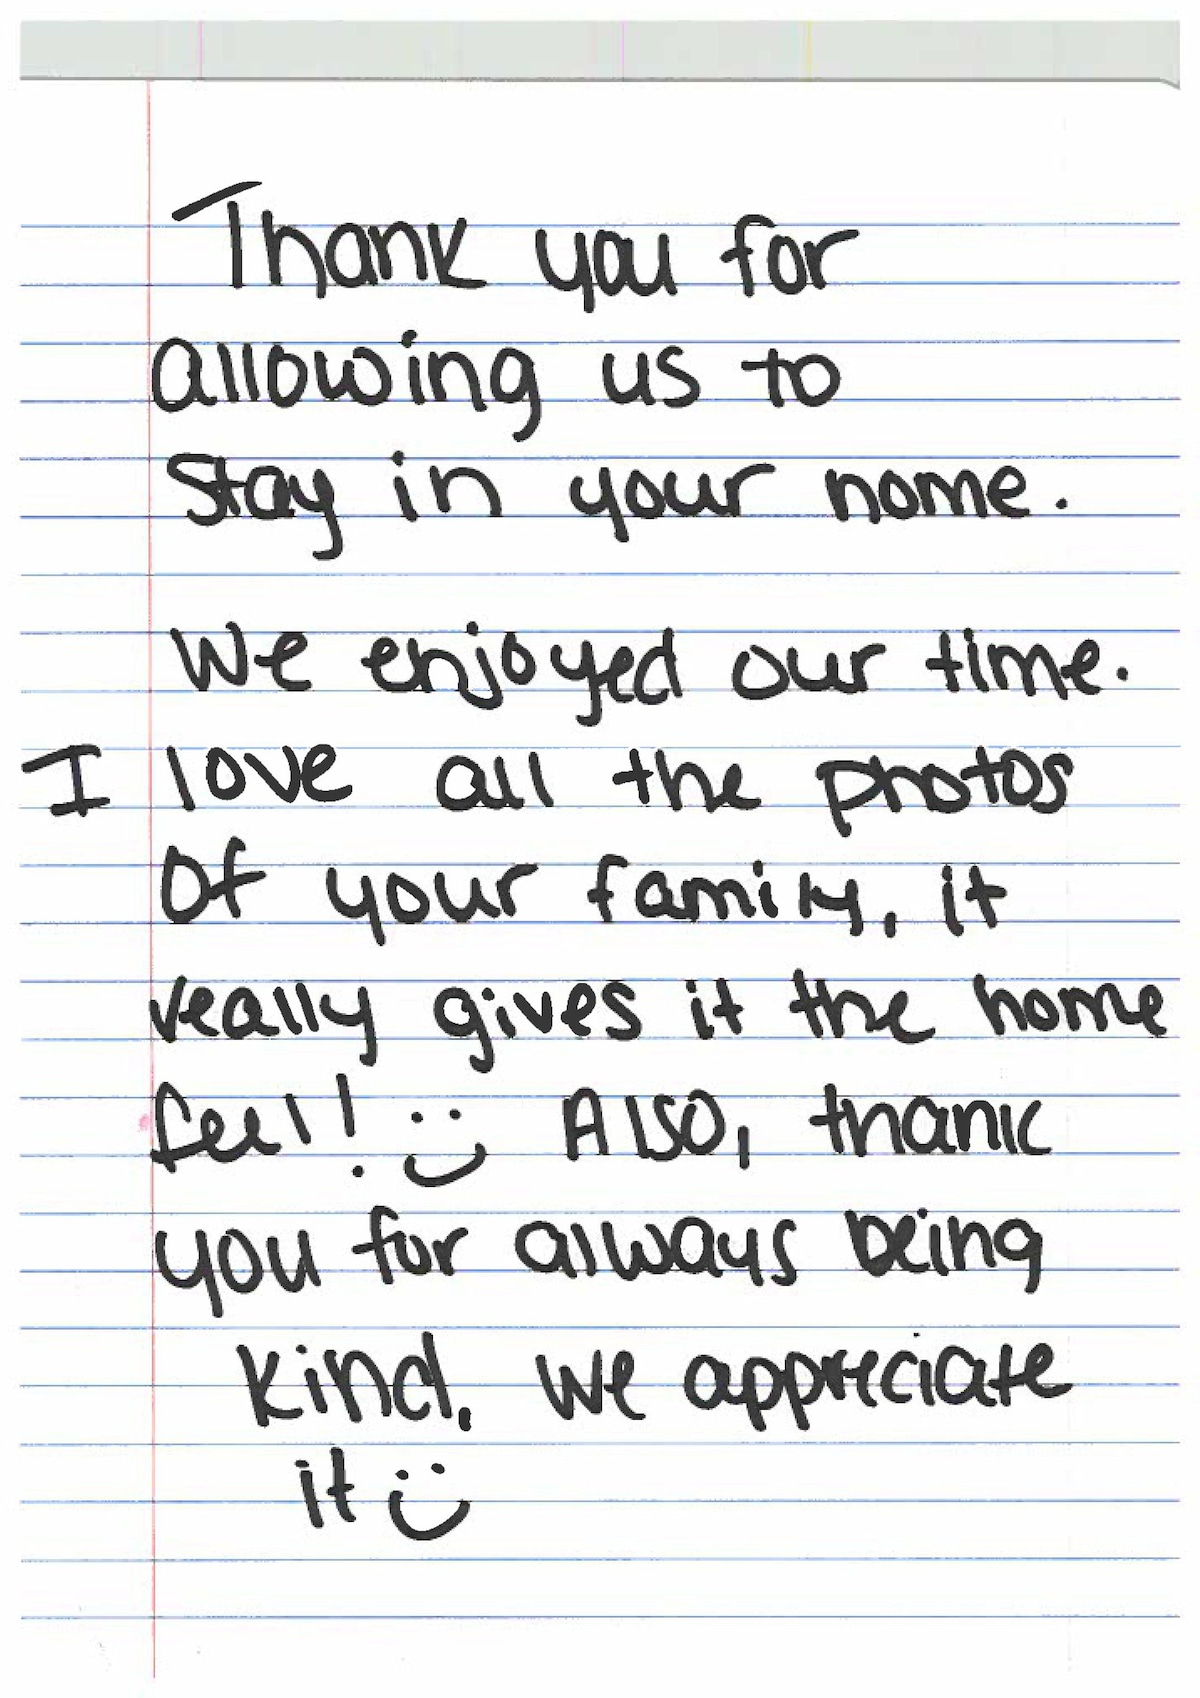 Thank you for
allowing us to
Stay in your home.
We enjoyed our time.
I love all the photos
Of your family, it
really gives it the home
feel! :) Also, thank
you for always being
kind, we appreciate
it :)